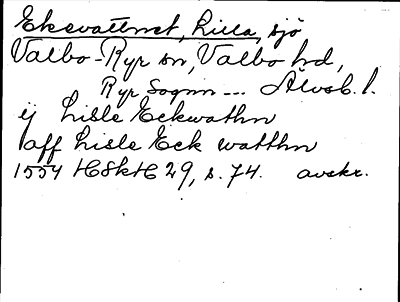 Eksvattnet, Lilla, sjö
Valbo-Ryr sn, Valbo hd,
Ryr Sognn --- Älvsb. l.
ij Lisle Eckwathn
aff Lisle Eck watthn
1554 HSkH 29, s. 74. avskr.